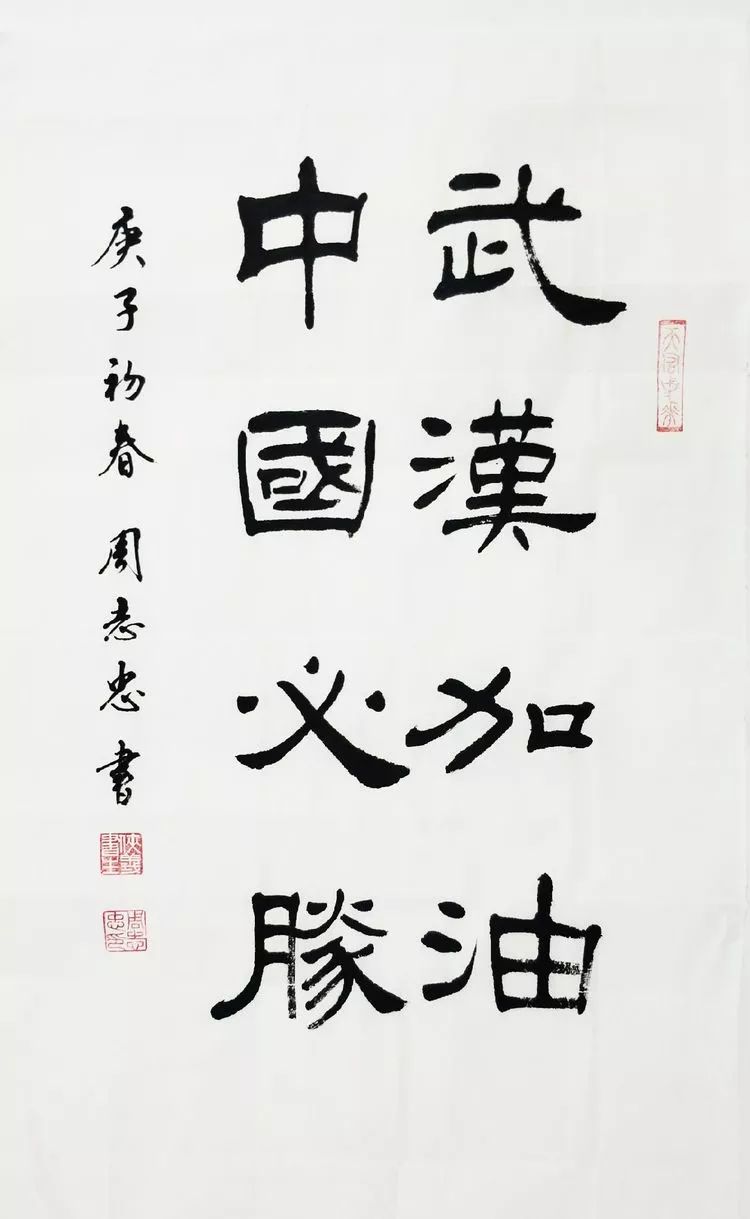 武漢加油
中國必勝
庚子初春 周志忠書